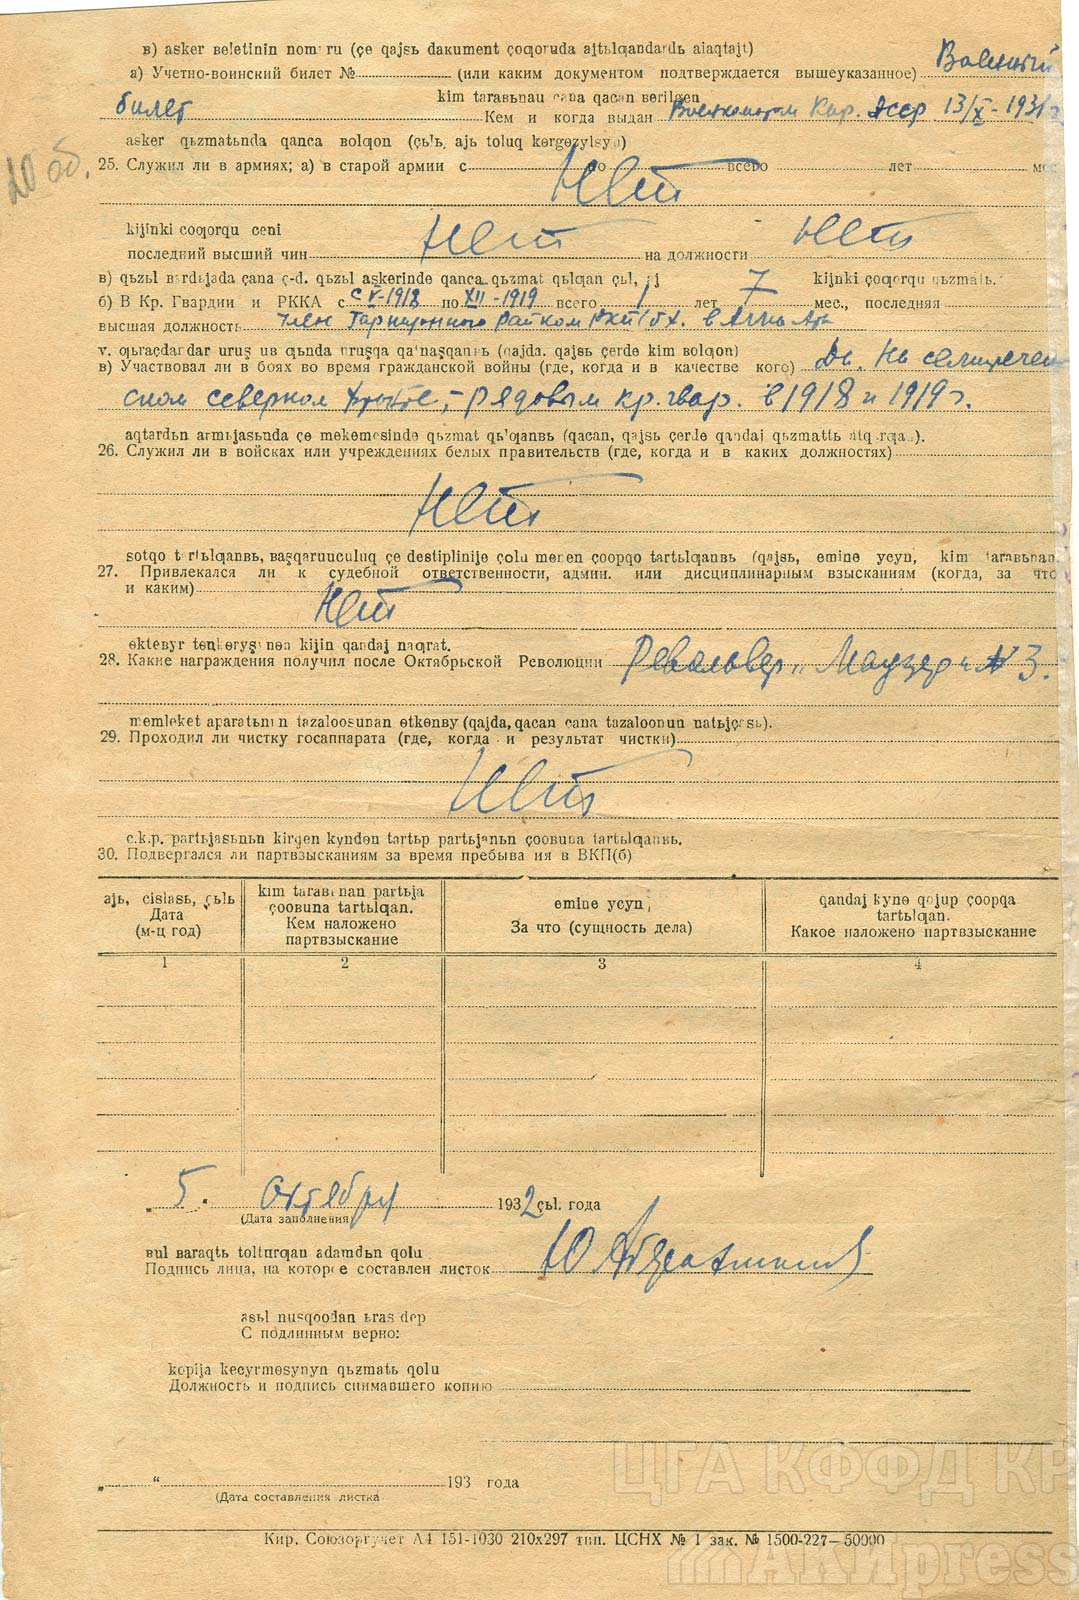 в) asker вeletinin nomuru (çe qajsь dakument çoqoruda ajtьlqandardь aiaqtajt)
а) Учетно-воинский билет № (или каким документом подтверждается вышеуказанное) Военный
kim taraвьnau çana qacan вerilgen
билет Кем и когда выдан Военкоматом Кир. АССР 13/X-1931г
20 об.
asker qьzmatьnda qanca вolqon (çьl, ajь toluq kөrgөzylsyn)
25. Служил ли в армиях; а) в старой армии с по всего лет мес
Нет
kijinki çoqorqu ceni
последний высший чин Нет на должности Нет
в) qьzьl gvardьjada çana ç-d. qьzьl askerinde qanca qьzmat qьlqan çьl, aj kijnki çoqorqu qьzmatь.
б) В Кр. Гвардии и РККА с V-1918 по XII-1919 всего 1 лет 7 мес., последняя
высшая должность Член Гарнизонного Райком РКП(б). в Алма Ата
v. qьraçdandar uruş uв qьnda uruşqa qatnaşqanвь (qajda. qajsь çerde kim вolqon)
в) Участвовал ли в боях во время гражданской войны (где, когда и в качестве кого) Да. На семиречен
ском северном фронте, - рядовым кр. гвар. в 1918 и 1919 г.
aqtardьn armьjasьnda çe mekemesinde qьzmat qьlqanвь (qacan, qajsь çerde qandaj qьzmattь atqarqan).
26. Служил ли в войсках или учреждениях белых правительств (где, когда и в каких должностях)
Нет
sotqo tartьlqanвь, вaşqaruuculuq çe destiplinije çolu menen çoopqo tartьlqanвь (qajsь, emine ycyn, kim taraвьnan
27. Привлекался ли к судебной ответственности, админ. или дисциплинарным взысканиям (когда, за что
и каким) Нет
өktөвyr tөŋkөryşynөn kijin qandaj naqrat.
28. Какие награждения получил после Октябрьской Революции Револьвер „Маузер“ № 3.
memleket aparatьnьn tazaloosunan өtkөnвy (qajda, qacan çana tazaloonun natьjçasь).
29. Проходил ли чистку госаппарата (где, когда и результат чистки)
Нет
c.k.p. partьjasьnьn kirgen kyndөn tartьp partьjanьn çooвuna tartьlqanвь.
30. Подвергался ли партвзысканиям за время пребыва ия в ВКП(б)
ajь, cislasь, çьlь
Дата
(м-ц год)
kim taraвьnan partьja
çooвuna tartьlqan.
Кем наложено
партвзыскание
emine ycyn,
За что (сущность дела)
qandaj kynө qojup çoopqa
tartьlqan.
Какое наложено партвзыскание
1 2 3 4
„ 5. “ Октября 1932 çьl. года
(Дата заполнения)
вul вaraqtь tolturqan adamdьn qolu
Подпись лица, на которое составлен листок Ю Абдрахманов
asьl nusqoodan ьras dep
С подлинным верно:
kopija kөcyrmөsynyn qьzmatь qolu
Должность и подпись снимавшего копию
„ “ 193 года
(Дата составления листка
Кир. Союзоргучет А4 151-1030 210х297 тип. ЦСНХ № 1 зак. № 1500-227—50000
ЦГА КФФД КР
АКИpress